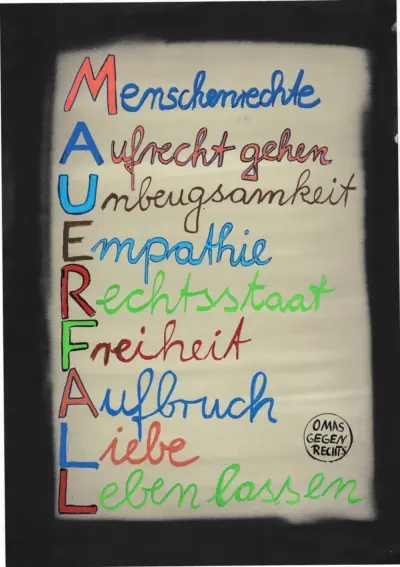 Menschenrechte
Aufrecht gehen
Unbeugsamkeit
Empathie
Rechtsstaat
Freiheit
Aufbruch
Liebe
Leben lassen
OMAS
GEGEN
RECHTS